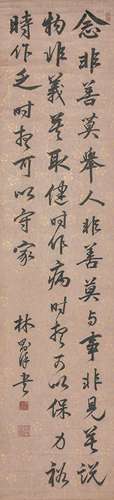 念非善莫舉人非善莫与事非見莫說
物非義莫取健时作病时想可以保力裕
時作乏时想可以守家
林 书